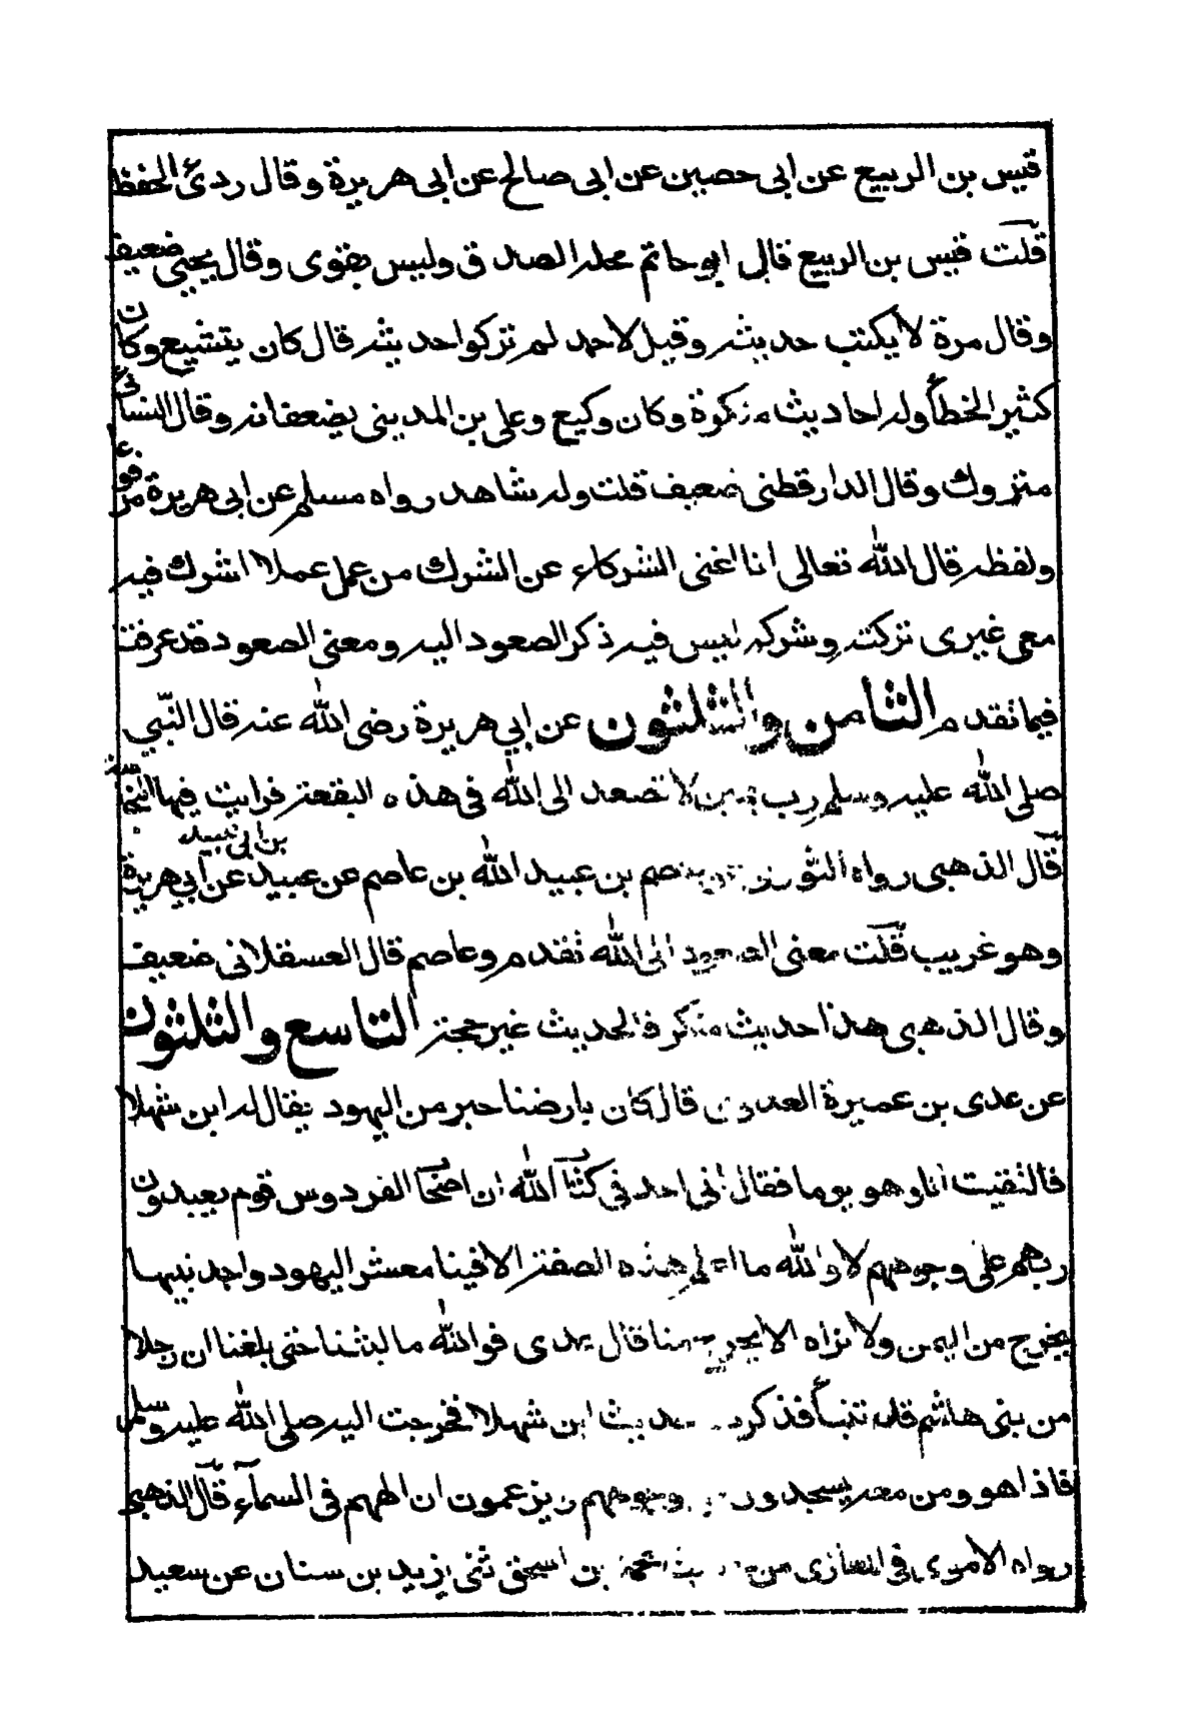 قيس بن الربيع عن ابى حصين عن ابى صالح عن ابى هريرة وقال ردئ الحفظ
قلت قيس بن الربيع قال ابو حاتم محله الصدق وليس بقوى وقال يحيى ضعيف
وقال مرة لا يكتب حديثه وقيل لاحمد لم تركوا حديثه قال كان يتشيع وكان
كثير الخطأ وله احاديث منكرة وكان وكيع وعلى بن المدينى يضعفانه وقال النسائى
متروك وقال الدارقطنى ضعيف قلت وله شاهد رواه مسلم عن ابى هريرة مرفوعا
ولفظه قال الله تعالى انا اغنى الشركاء عن الشرك من عمل عملا اشرك فيه
معى غيرى تركته وشركه ليس فيه ذكر الصعود اليه ومعنى الصعود قد عرفت
فيما تقدم الثامن والثلثون عن ابي هريرة رضى الله عنه قال النبي
صلى الله عليه وسلم رب يمين لا تصعد الى الله فى هذه البقعة فرايت فيها
قال الذهبى رواه الثورى عن عاصم بن عبيد الله بن عاصم عن عبيد بن ابى عبيد عن ابي هريرة
وهو غريب قلت معنى الصعود الى الله تقدم وعاصم قال العسقلانى ضعيف
وقال الذهبى هذا حديث منكر فالحديث غير حجة التاسع والثلثون
عن عدى بن عميرة العبدى قال كان بارضنا حبر من اليهود يقال له ابن شهلا
فالتقيت انا وهو يوما فقال انى اجد في كتاب الله ان اصحاب الفردوس قوم يعبدون
ربهم على وجوههم لا والله ما اعلم هذه الصفة الا فينا معشر اليهود واجد نبيها
يخرج من اليمن ولا نراه الا يخرج منا قال عدى فوالله ما لبثنا حتى بلغنا ان رجلا
من بنى هاشم قد تنبأ فذكرت حديث ابن شهلا فخرجت اليه صلى الله عليه وسلم
فاذا هو ومن معه يسجدون على وجوههم ويزعمون ان الههم فى السمآء قال الذهبى
رواه الاموى فى المغازى من حديث محمد بن اسحق ثنى يزيد بن سنان عن سعيد